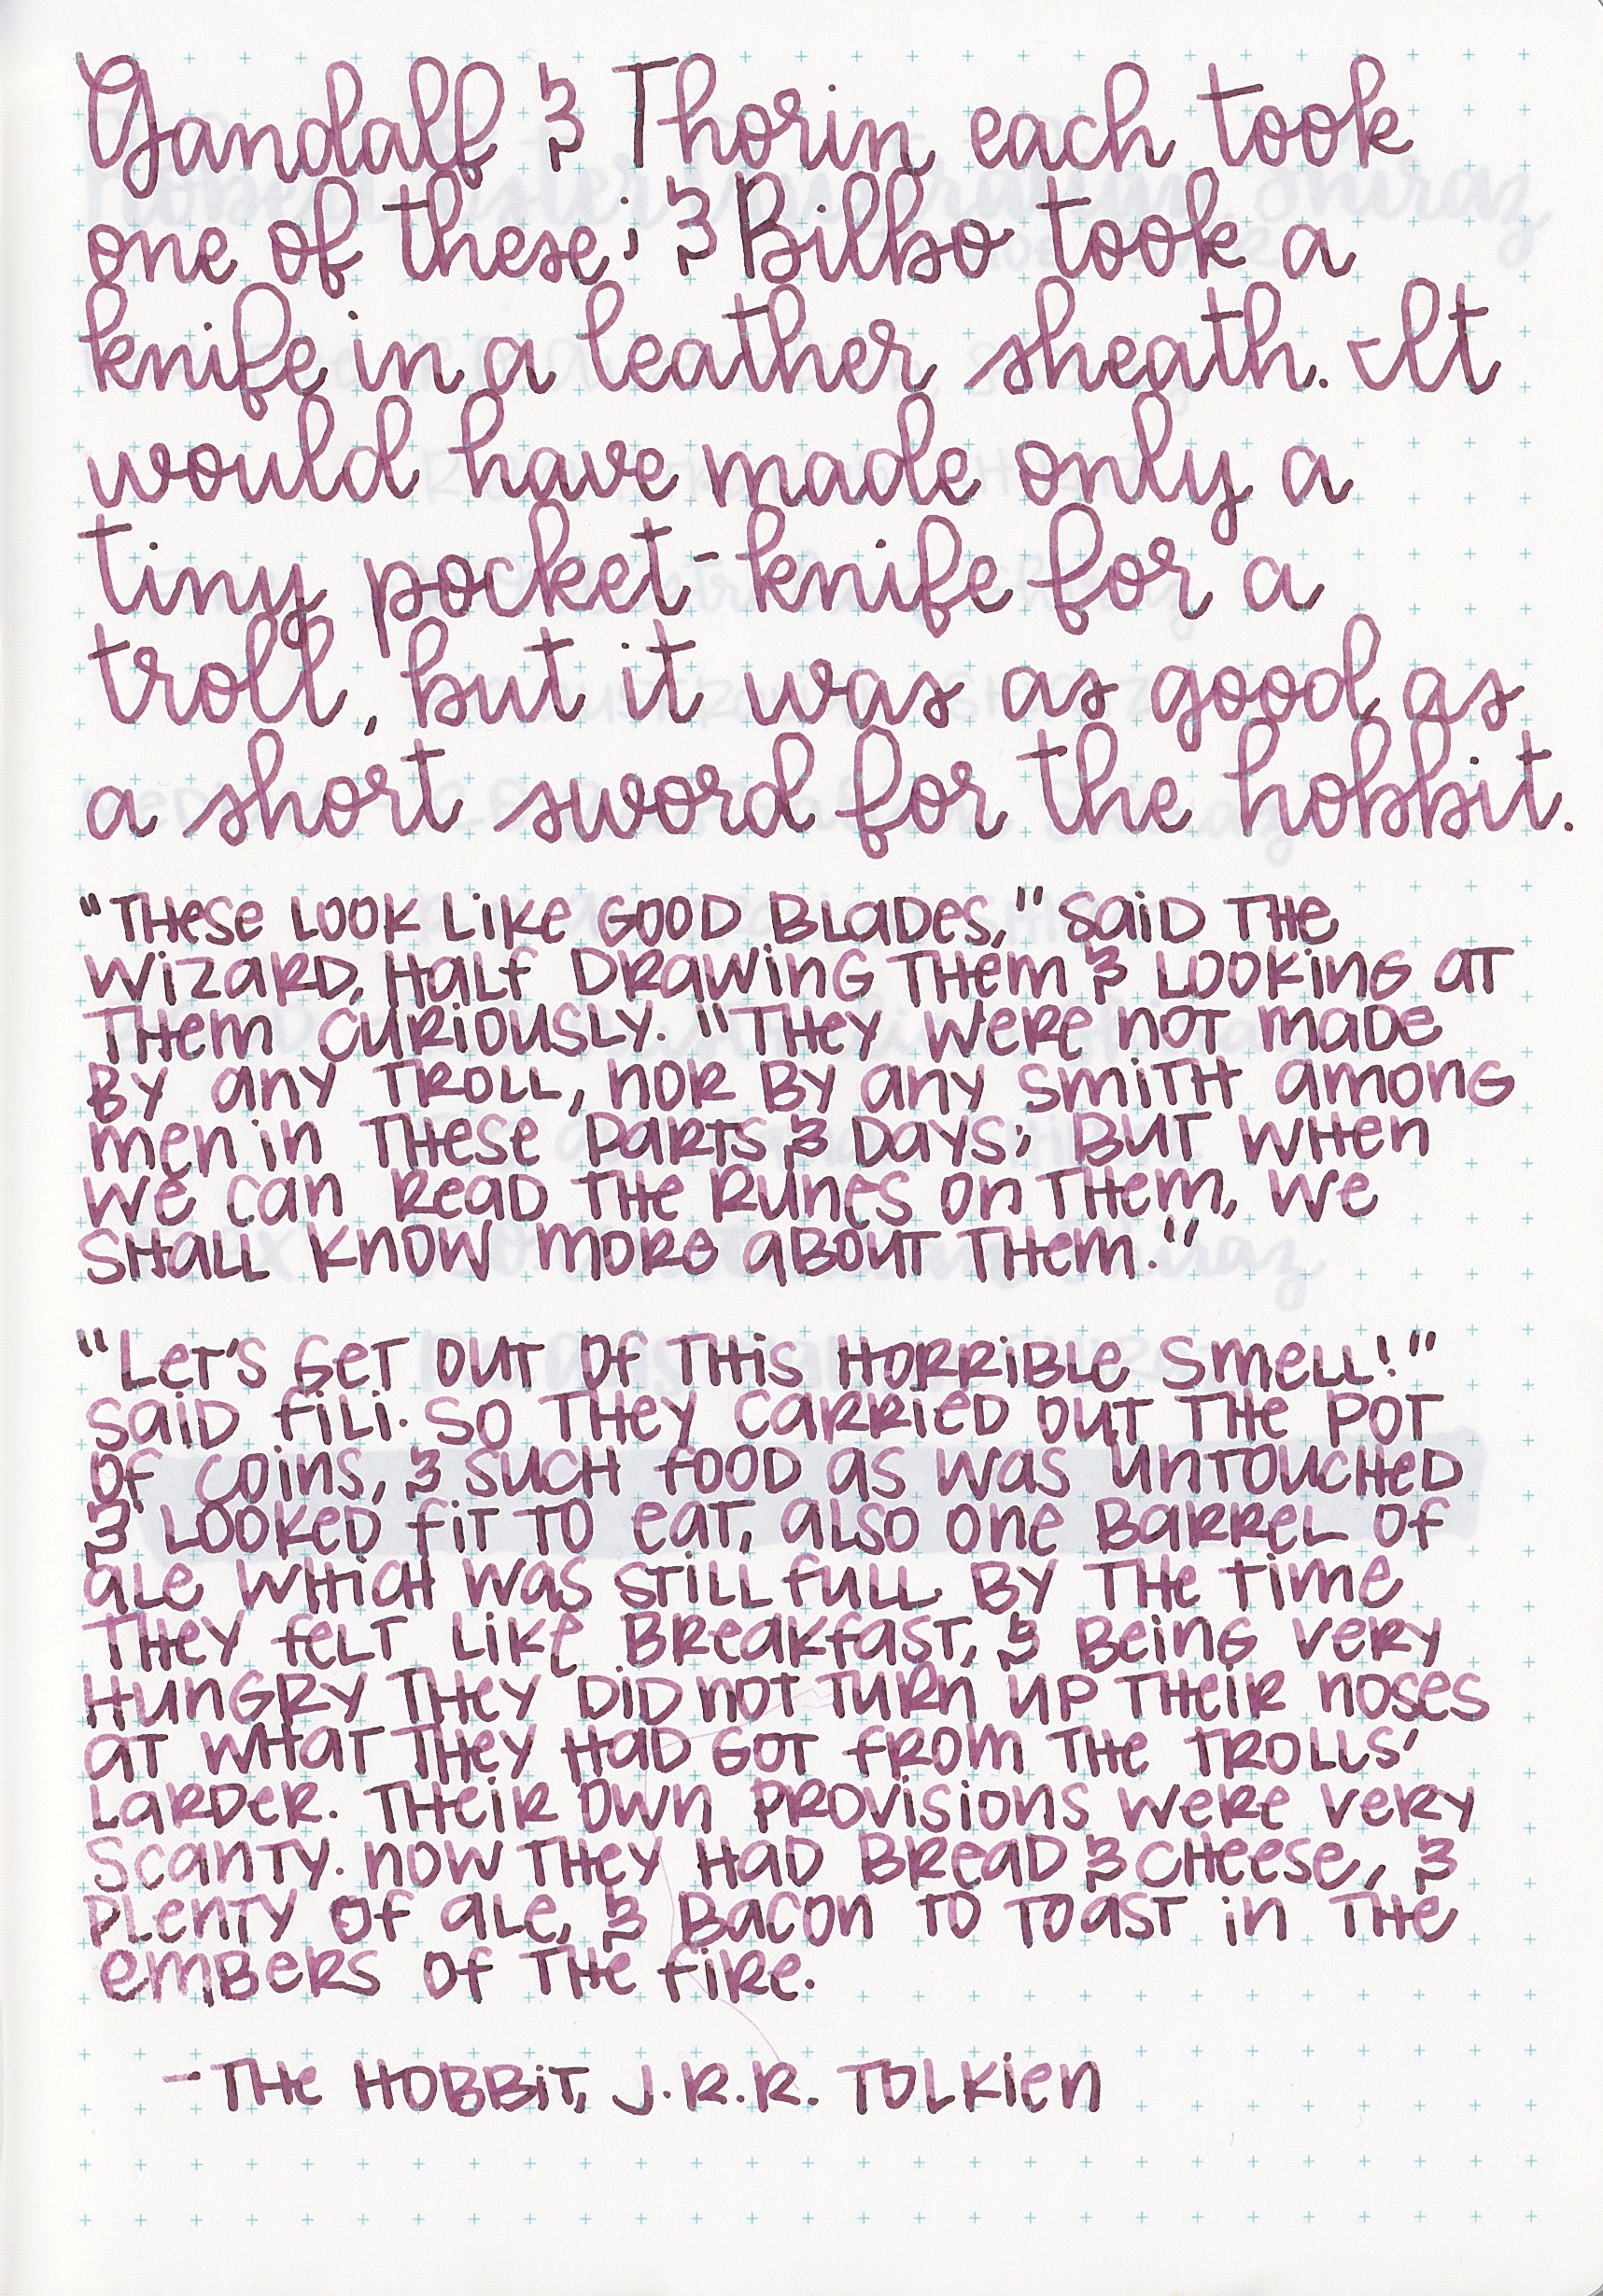 Gandalf & Thorin each took
one of these; & Bilbo took a
knife in a leather sheath. It
would have made only a
tiny pocket-knife for a
troll, but it was as good as
a short sword for the hobbit.
"These look like good blades," said the
wizard, half drawing them & looking at
them curiously. "They were not made
by any troll, nor by any smith among
men in these parts & days; but when
we can read the runes on them, we
shall know more about them."
"Let's get out of this horrible smell!"
said Fili. So they carried out the pot
of coins, & such food as was untouched
& looked fit to eat, also one barrel of
ale which was still full. By the time
they felt like breakfast, & being very
hungry they did not turn up their noses
at what they had got from the trolls'
larder. Their own provisions were very
scanty. Now they had bread & cheese, &
plenty of ale, & bacon to toast in the
embers of the fire.
-The Hobbit, J.R.R. Tolkien